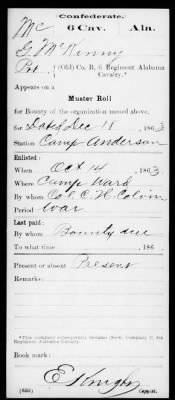 Confederate.
Mc 6 Cav. Ala.
G McKinny
Pvt., (Old) Co. B, 6 Regiment Alabama
Cavalry.*
Appears on a
Muster Roll
for Bounty of the organization named above,
for Dated Dec 18, 1863
Station Camp Anderson
Enlisted:
When Oct 14, 1863.
Where Camp Ward
By whom Col. C. H. Colvin
Period War
Last paid:
By whom Bounty due
To what time , 186 .
Present or absent Present
Remarks:
*This company subsequently became (New) Company C, 6th
Regiment Alabama Cavalry.
Book mark:
E Knight
(635) Copyist.